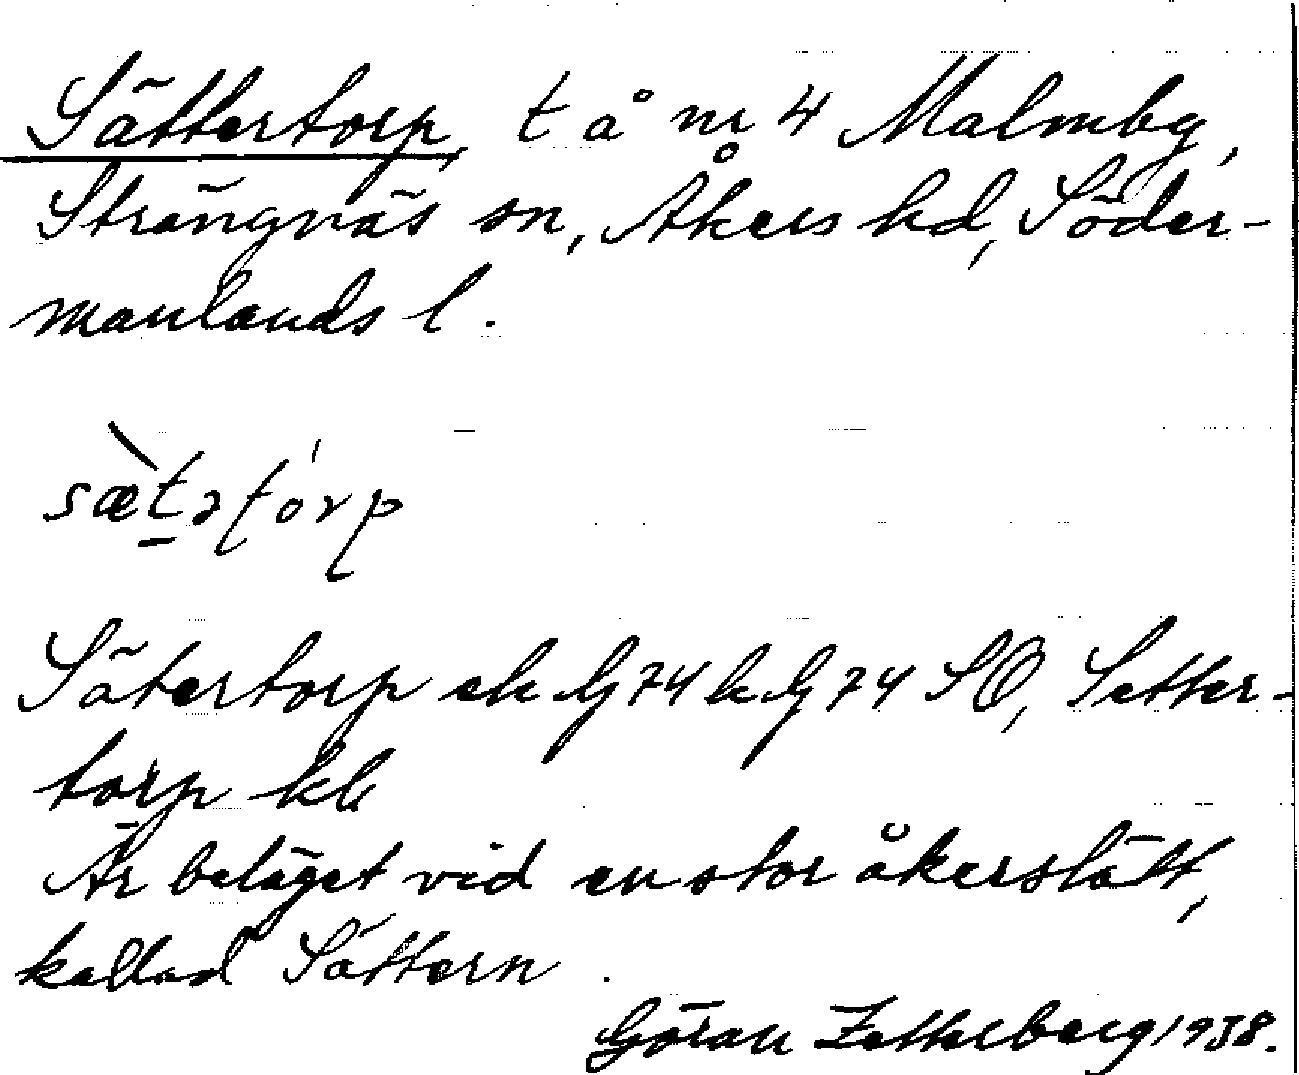 Sättertorp, t å nr 4 Malmby,
Strängnäs sn, Åkers hd, Söder-
manlands l.
sæ̀tətórp
Sätertorp ek G 74 k G 74 SO, Setter-
torp kb
Är beläget vid en stor åkerslätt,
kallad Sättern.
Göran Zetterberg 1938.